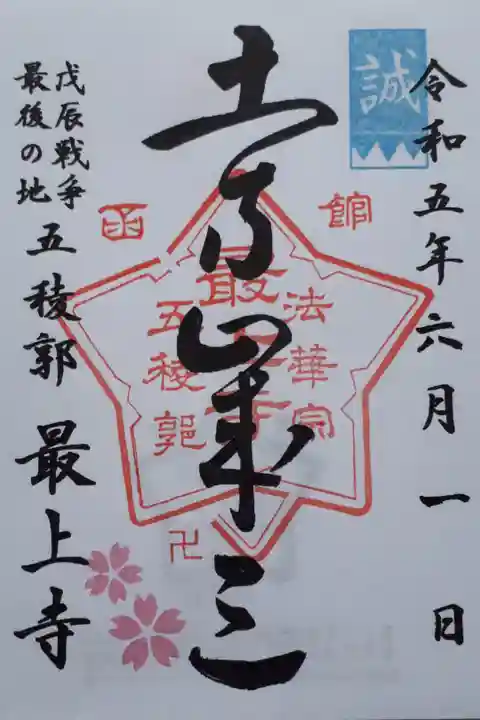 令和五年六月一日
誠
土方歳三
函館
法華宗
最上寺
五稜郭
卍
戊辰戦争
最後の地
五稜郭
最上寺